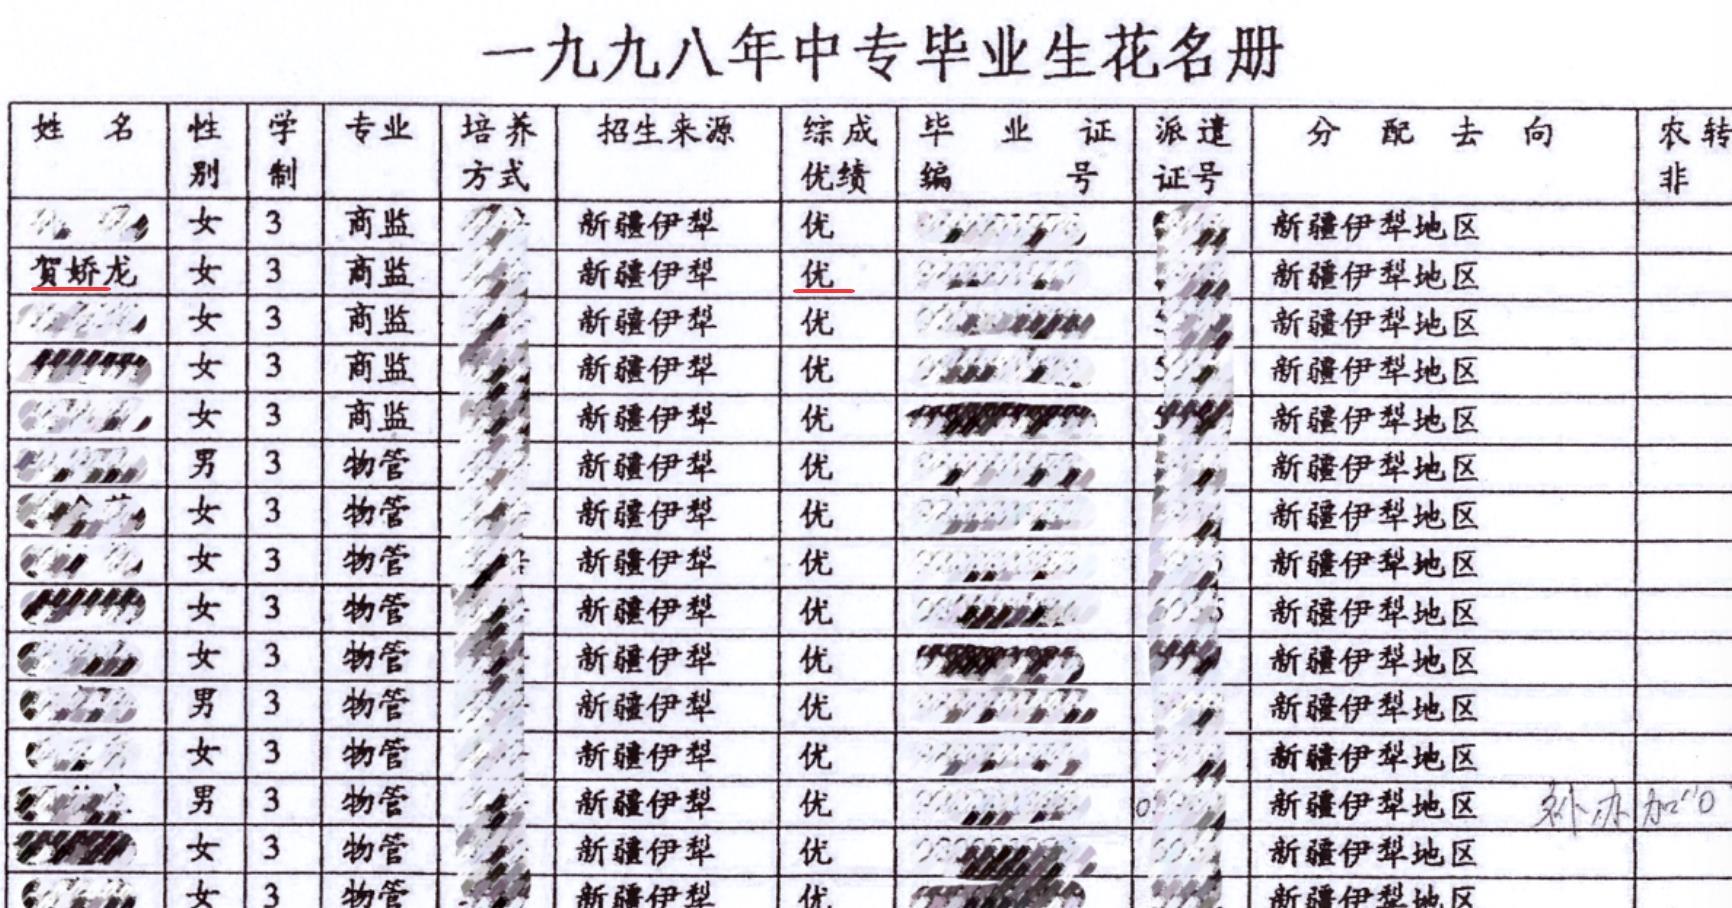 一九九八年中专毕业生花名册
姓 名 性别 学制 专业 培养方式 招生来源 综成优绩 毕业证编号 派遣证号 分配去向 农转非
女 3 商监 新疆伊犁 优 新疆伊犁地区
贺娇龙 女 3 商监 新疆伊犁 优 新疆伊犁地区
女 3 商监 新疆伊犁 优 新疆伊犁地区
女 3 商监 新疆伊犁 优 新疆伊犁地区
女 3 商监 新疆伊犁 优 新疆伊犁地区
男 3 物管 新疆伊犁 优 新疆伊犁地区
女 3 物管 新疆伊犁 优 新疆伊犁地区
女 3 物管 新疆伊犁 优 新疆伊犁地区
女 3 物管 新疆伊犁 优 新疆伊犁地区
女 3 物管 新疆伊犁 优 新疆伊犁地区
男 3 物管 新疆伊犁 优 新疆伊犁地区
女 3 物管 新疆伊犁 优 新疆伊犁地区
男 3 物管 新疆伊犁 优 0 新疆伊犁地区 补办加"0
女 3 物管 新疆伊犁 优 新疆伊犁地区
女 3 物管 新疆伊犁 优 新疆伊犁地区